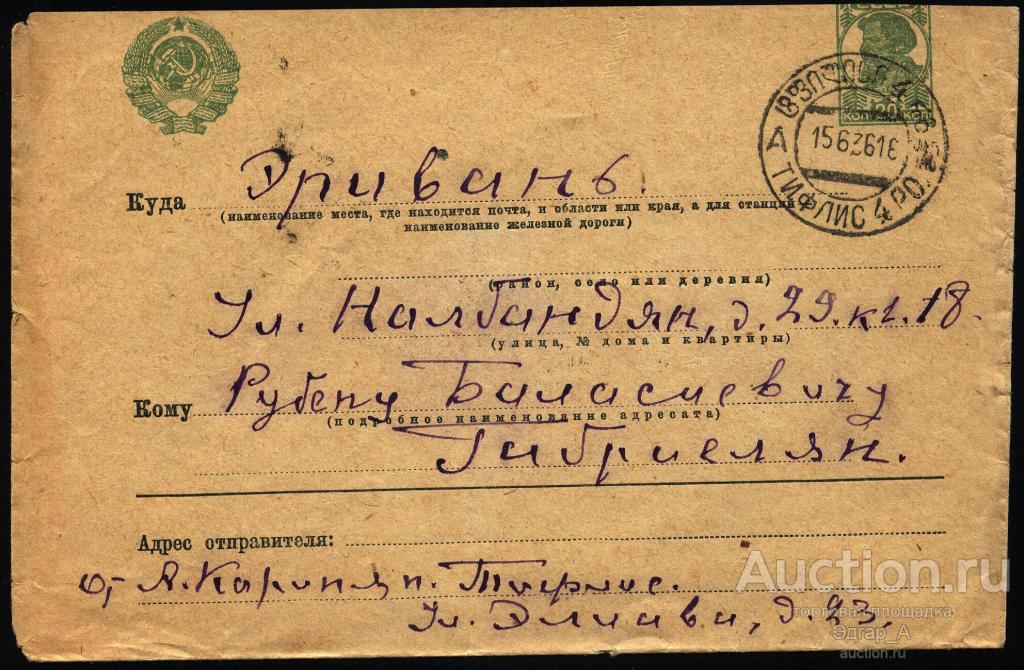 СССР
КОП 20 КОП
1563616
А ТИФЛИС 4 РО.
Эривань.
Куда
(наименование места, где находится почта, и области или края, а для станций
наименование железной дороги)
(район, село или деревня)
Ул. Налбандян, д. 29. кв. 18.
(улица, № дома и квартиры)
Кому Рубену Баласиевичу
(подробное наименование адресата)
Габриелян.
Адрес отправителя:
Тифлис.
Ул. Элиави, д. 23.
Auction.ru
торговая площадка
Эдгар_А
auction.ru